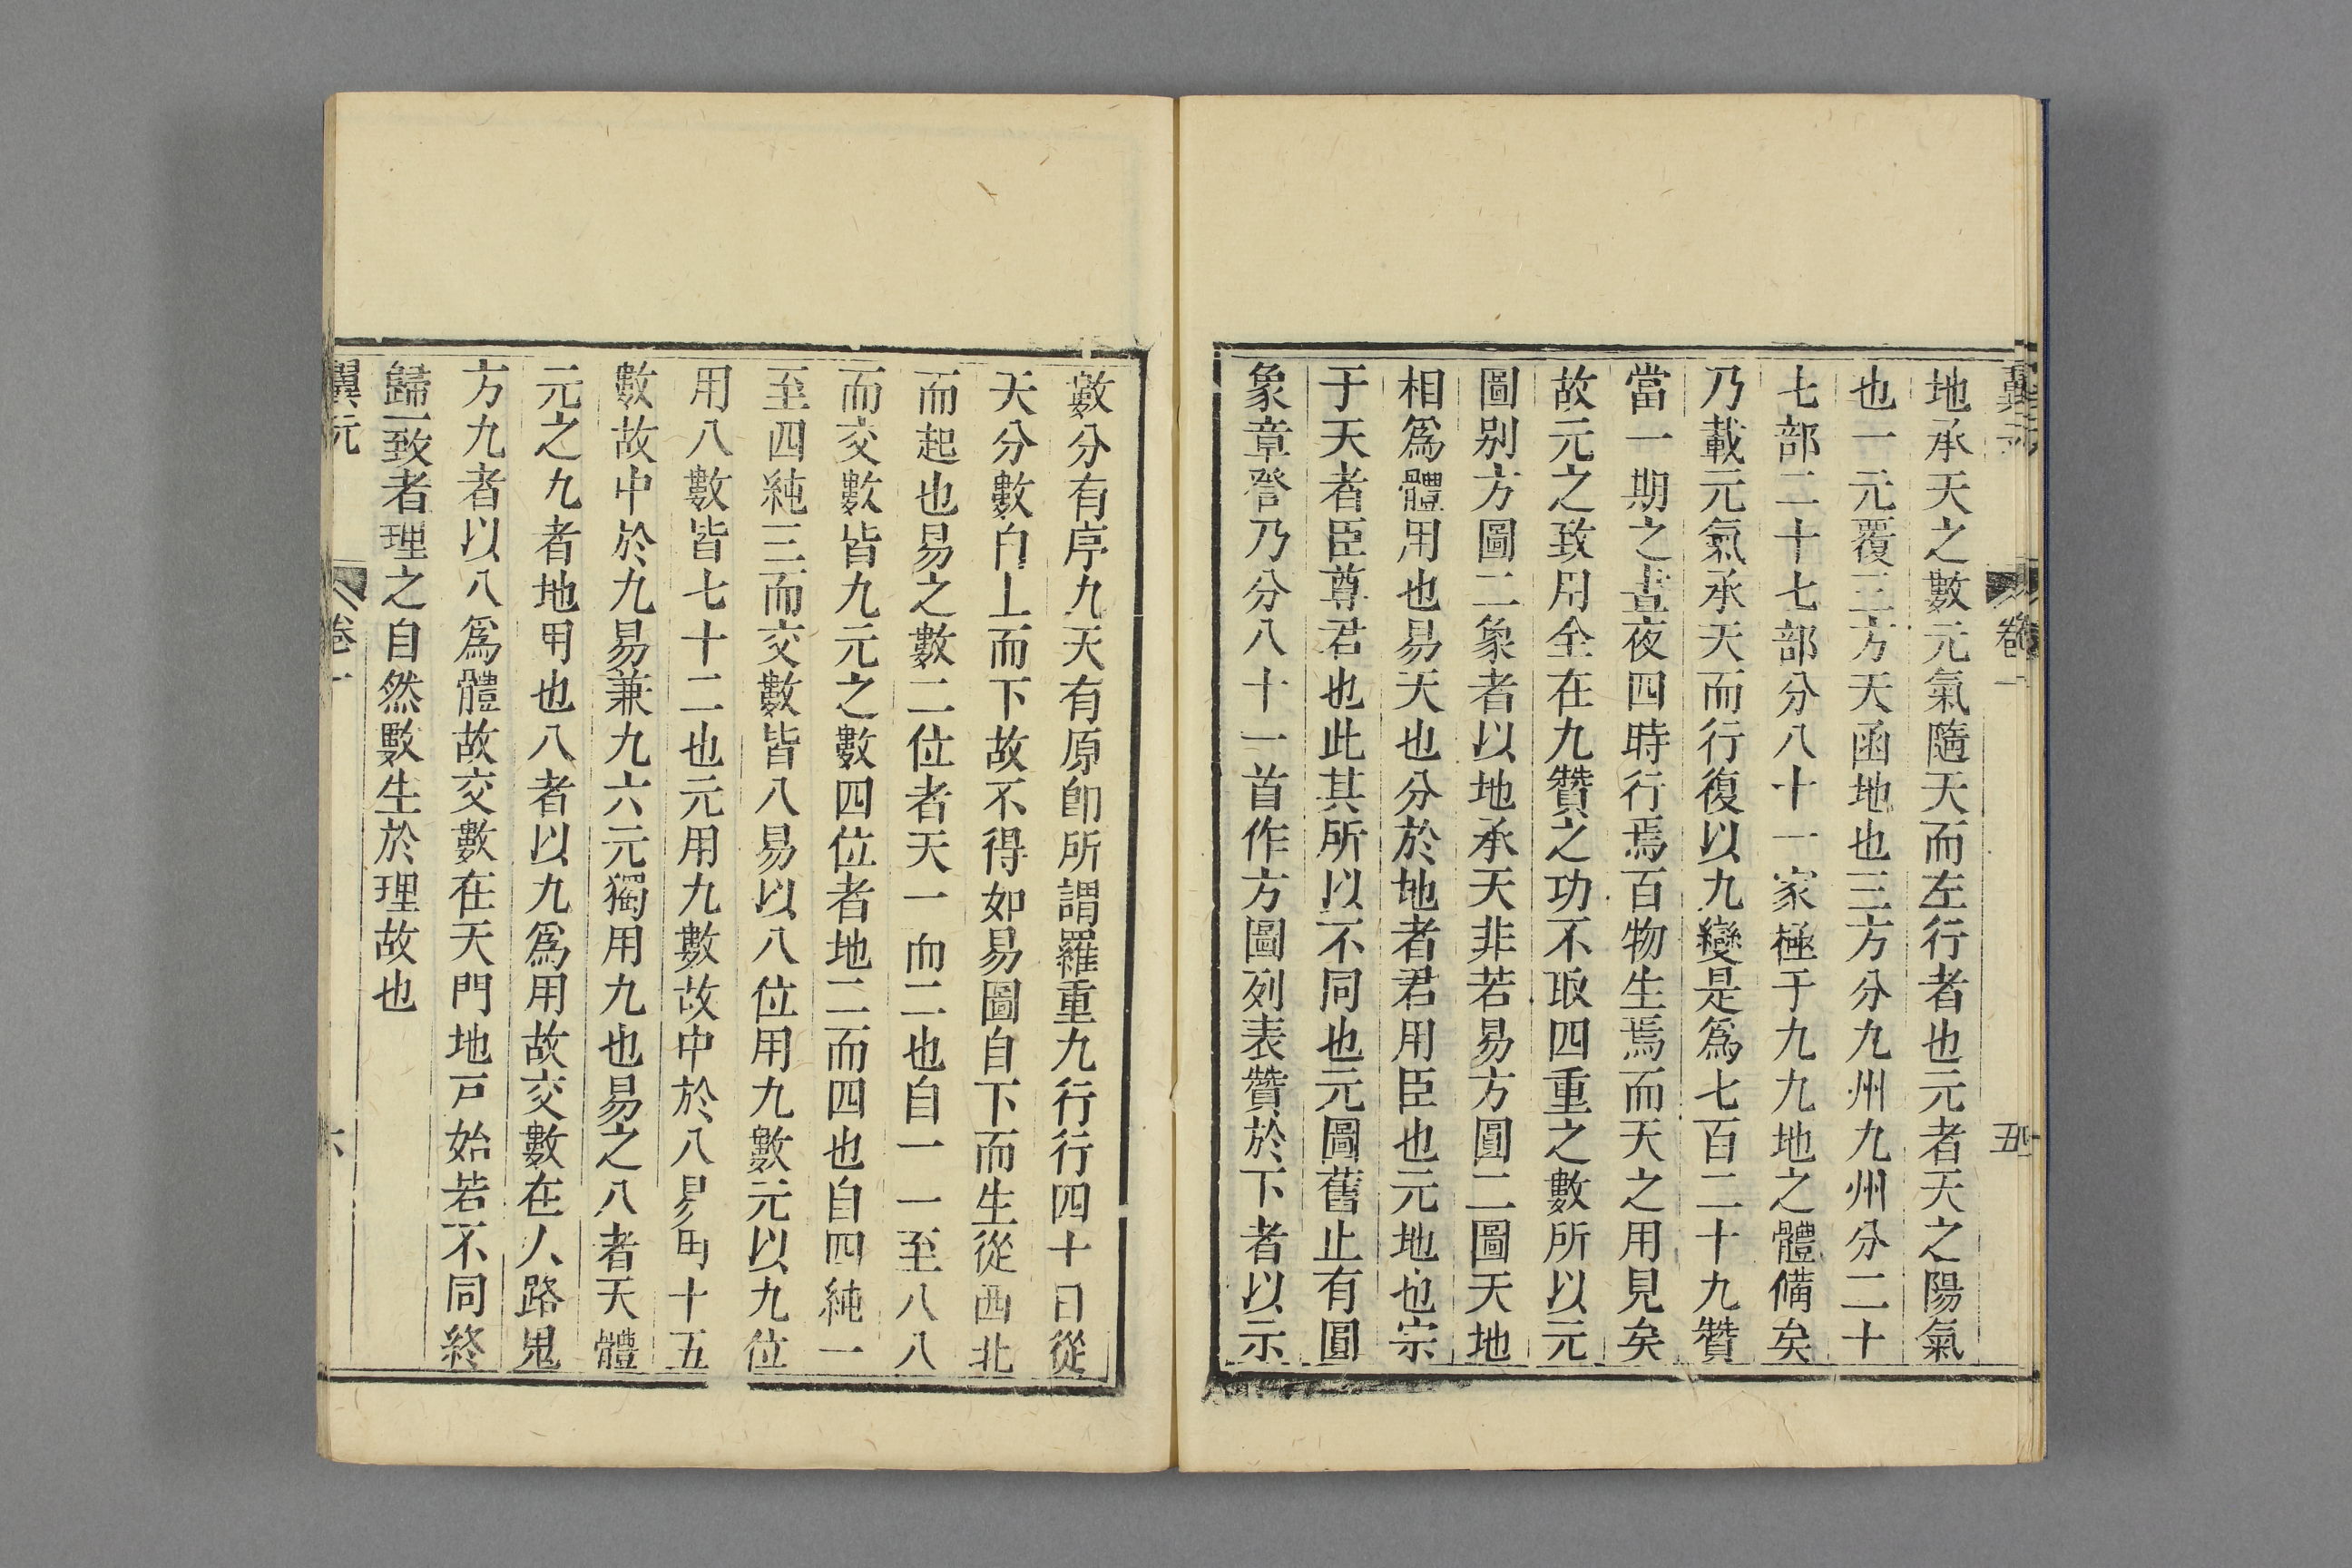 翼元
卷一
五
地承天之數元氣隨天而左行者也元者天之陽氣
也一元覆三方天函地也三方分九州九州分二十
七部二十七部分八十一家極于九九地之體備矣
乃載元氣承天而行復以九變是爲七百二十九贊
當一期之晝夜四時行焉百物生焉而天之用見矣
故元之致用全在九贊之功不取四重之數所以元
圖别方圖二象者以地承天非若易方圓二圖天地
相爲體用也易天也分於地者君用臣也元地也宗
于天者臣尊君也此其所以不同也元圖舊止有圓
象章詧乃分八十一首作方圖列表贊於下者以示
數分有序九天有原卽所謂羅重九行行四十日從
天分數自上而下故不得如易圖自下而生從西北
而起也易之數二位者天一而二也自一一至八八
而交數皆九元之數四位者地二而四也自四純一
至四純三而交數皆八易以八位用九數元以九位
用八數皆七十二也元用九數故中於八易用十五
數故中於九易兼九六元獨用九也易之八者天體
元之九者地用也八者以九爲用故交數在人路鬼
方九者以八爲體故交數在天門地戸始若不同終
歸一致者理之自然數生於理故也
翼元
卷一
六